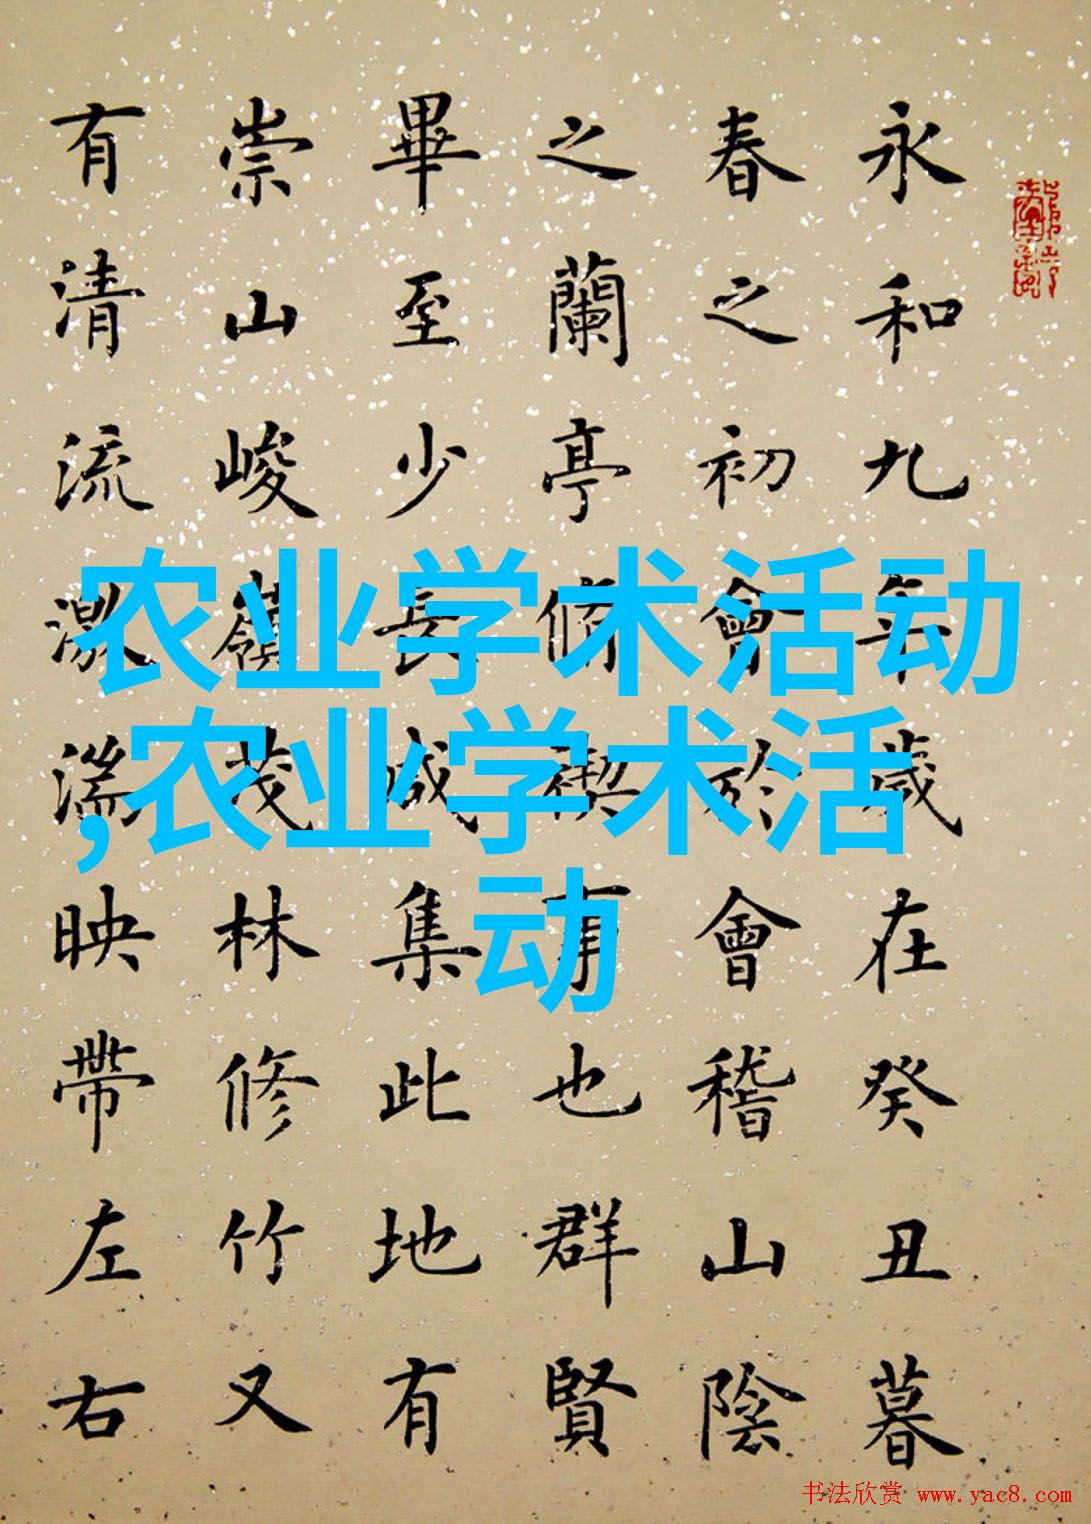 永和九年歲在癸丑暮
春之初會於會稽山陰
之蘭亭脩禊事也群賢
畢至少長咸集此地有
崇山峻嶺茂林修竹又
有清流激湍映帶左右
农业学术活动
,农业学术活
动
书法欣赏 www.yac8.com